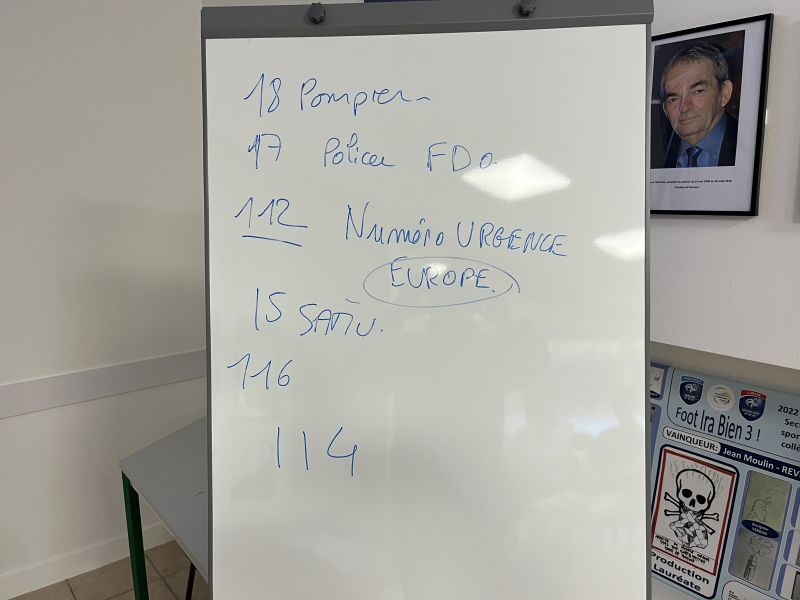 18 Pompier
17 Police FDO
112 Numéro URGENCE
EUROPE.
15 SAMU.
116
114
2022
Foot Ira Bien 3 !
VAINQUEUR: Jean Moulin - REV
Production
Lauréate